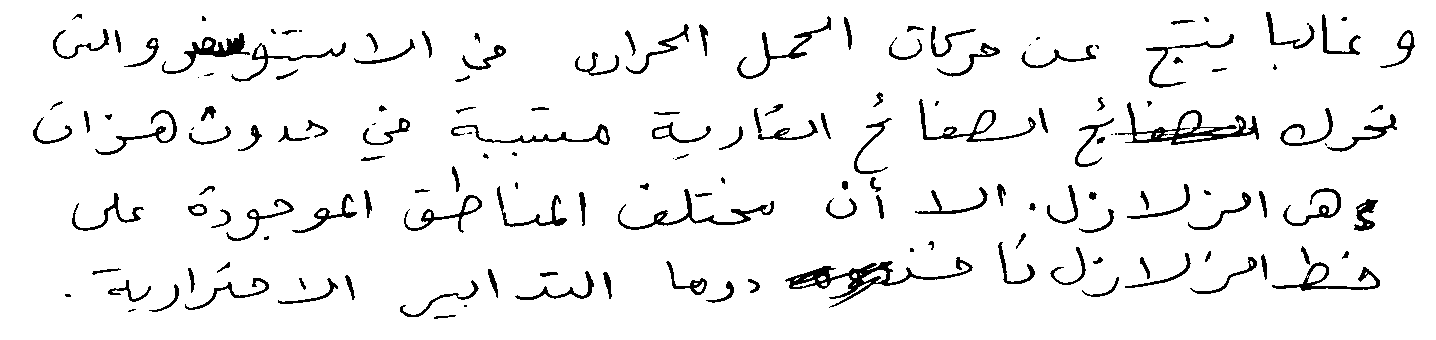 وغالبا ينتج عن حركات الحمل الحراري في الاستينوسفير والتي
تحرك الصفائح القارية متسببة في حدوث هزات
وهي الزلازل. الا أن مختلف المناطق الموجودة على
خط الزلازل تأخذ دوما التدابير الاحترازية.